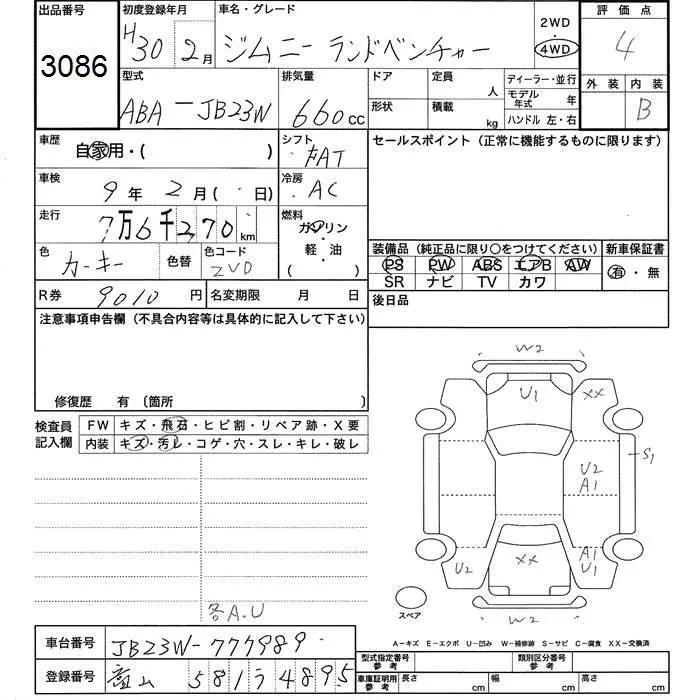 出品番号
3086
初度登録年月
H30 2月
車名・グレード
ジムニー ランドベンチャー
2WD
・
4WD
評価点
4
型式
ABA-JB23W
排気量
660cc
ドア
定員
人
形状
積載
kg
ディーラー・並行
モデル年式 年
ハンドル 左・右
外装
内装
B
車歴
自家用・( )
シフト
AT
セールスポイント (正常に機能するものに限ります)
車検
9年 2月( ・ 日)
冷房
AC
走行
7万6千270km
燃料
ガソリン
・
軽・油
( )
色
カーキー
色替
色コード
ZVD
装備品 (純正品に限り○をつけてください)
PS PW ABS エアB AW
SR ナビ TV カワ
新車保証書
有・無
R券
9010円
名変期限 月 日
後日品
注意事項申告欄 (不具合内容等は具体的に記入して下さい)
修復歴 有 〔箇所 〕
検査員記入欄
FW キズ・飛石・ヒビ割・リペア跡・X要
内装 キズ・汚レ・コゲ・穴・スレ・キレ・破レ
各A.U
W2
U1
XX
S1
U2
A1
A1
U1
U2
XX
W2
スペア
A-キズ E-エクボ U-凹み W-補修跡 S-サビ C-腐食 XX-交換済
車台番号
JB23W-777989
登録番号
富山 581 う 4895
型式指定番号 参考
類別区分番号 参考
車庫証明用 参考
長さ cm
幅 cm
高さ cm